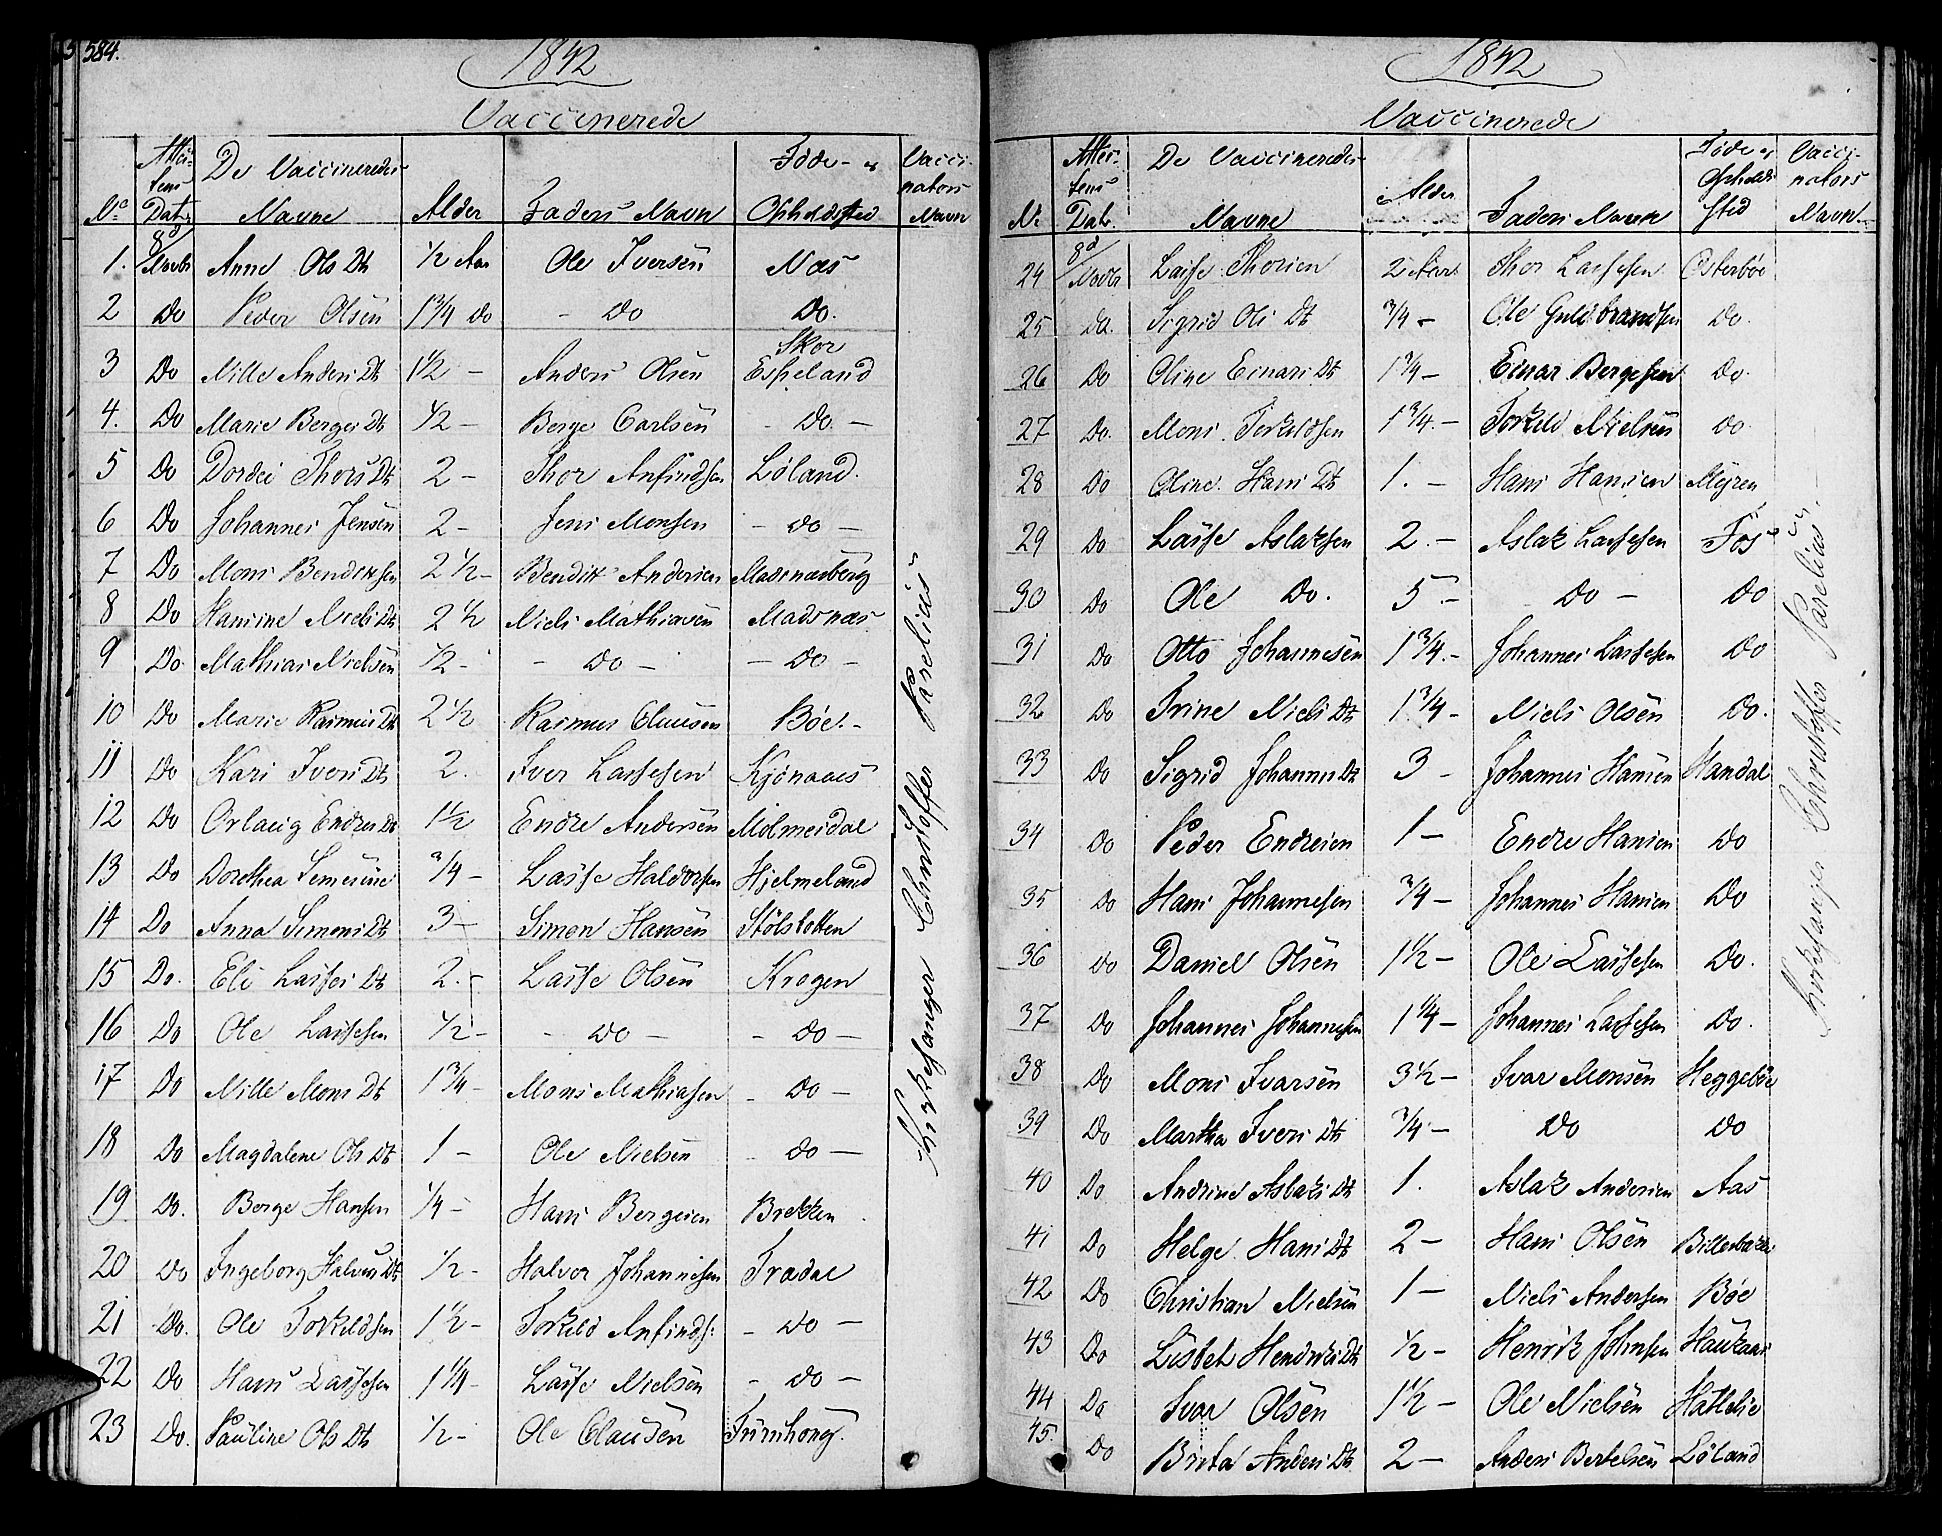 584.
1842
Vaccinerede
No Attestens Dat: De Vaccineredes Navne Alder Faders Navn Føde- og Opholdsted Vaccinators Navn
1. 8d/Novbr Anne Ols Dtr 1/2 Aar Ole Iversen Næs
2 Do Peder Olsen 1 3/4 do - do Do.
3 Do Nille Anders Dtr 1 1/2 - Anders Olsen Skor Espeland
4. Do Marie Berges Dtr 1/2 - Berge Carlsen - Do. -
5 Do Dordei Thors Dtr 2 - Thor Anfindsen Løland.
6 Do Johannes Jensen 2 - Jens Monsen - do -
7 Do Mons Bendiksen 2 1/2 - Bendik Andersen Madsnæsberg
8 Do Hansine Niels Dtr 2 1/2 Niels Mathiasen Madsnæs
9 Do. Mathias Nielsen 1/2 - - do - - do -
10 Do Marie Rasmus Dtr 2 1/2 Rasmus Clausen Bøe. -
11 Do Kari Ivers Dtr 2. Iver Lassesen Kjønaaes
12 Do Orlaug Endres Dtr 1 1/2 Endre Andersen Mølmeisdal
13 Do Dorthea Semerine 3/4 - Lasse Haldorsen Hjelmeland
14 Do Anna Simons Dtr 3 - Simon Hansen Stølslotten
15 Do. Eli Lasses Dtr 2. - Lasse Olsen Krogen
16 Do Ole Lassesen 1/2 - - do - - do -
17 Do Nille Mons Dtr 1 3/4 - Mons Mathiasen - do -
18 Do Magdalene Ols Dtr 1 - Ole Nielsen - do -
19 Do. Berge Hansen 1/4 - Hans Bergesen Brekken
20 Do Ingeborg Halvors Dtr 1/2 - Halvor Johannesen Fradal
21 Do. Ole Torkildsen 1 1/2 - Torkild Anfinds: - do -
22 Do Hans Lassesen 1 1/4 - Lasse Nielsen - do -
23 Do. Pauline Ols Dtr 1/2 - Ole Clausen
Kirkesanger Christoffer Parelius
1842
Vaccinerede
No Attestens Dat. De Vaccineredes Navne Alder Faders Navn Føde og Opholds Sted Vaccinators Navn
24 8d/Novbr Lasse Thorsen 2 Aar Thor Lassesen Østerbøe
25 Do. Sigrid Ols Dtr 3/4 - Ole Guldbrandsen Do.
26 Do Oline Einars Dtr 1 3/4 - Einar Bergesen Do.
27 Do. Mons Torkildsen 1 3/4. - Torkild Nielsen Do
28 Do Oline Hans Dtr 1. - Hans Hansen Myren
29 Do Lasse Aslaksen 2. - Aslak Lassesen Fos
30 Do Ole Do. 5. - - do - Do
31 Do Otto Johannesen 1 3/4. - Johannes Lassesen Do
32 Do Trine Niels Dtr 1 3/4 - Niels Olsen Do.
33 Do Sigrid Johannes Dtr 3 - Johannes Hansen Handal
34 Do Peder Endresen 1 - Endre Hansen Do
35 Do Hans Johannesen 3/4 - Johannes Hansen Do
36 Do Daniel Olsen 1 1/2 - Ole Lassesen Do.
37 Do Johannes Johannesen 1 1/4 - Johannes Lassesen Do.
38 Do Mons Ivarsen 3 1/2 - Ivar Monsen Heggebøe
39 Do Martha Ivers Dtr 3/4 - Do Do
40 Do Andrine Aslaks Dtr 1. Aslak Andersen Aas
41 Do Helge Hans Dtr 2 - Hans Olsen
42 Do Christian Nielsen 1 - Niels Andersen Bøe
43 Do Lisbet Hendriks Dtr 1/2 - Henrik Johnsen Haukaas
44 Do Ivar Olsen 1 1/2 - Ole Nielsen Hatlelie
45. Do Brita Anders Dtr 2 - Anders Bertelsen Løland
Kirkesanger Christoffer Parelius. -